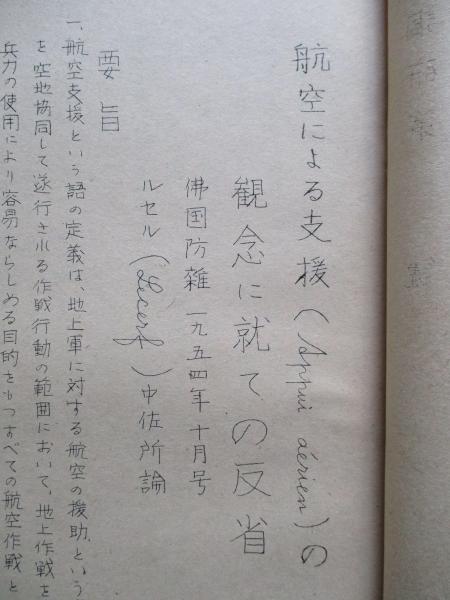 航空による支援(Appui aérien)の
観念に就ての反省
佛国防雑 一九五四年十月号
ルセル(Lecerf)中佐所論
要旨
一、航空支援という語の定義は、地上軍に対する航空の援助、という
を空地協同して遂行される作戦行動の範囲において、地上作戦を
兵力の使用により容易ならしめる目的をもつすべての航空作戦と